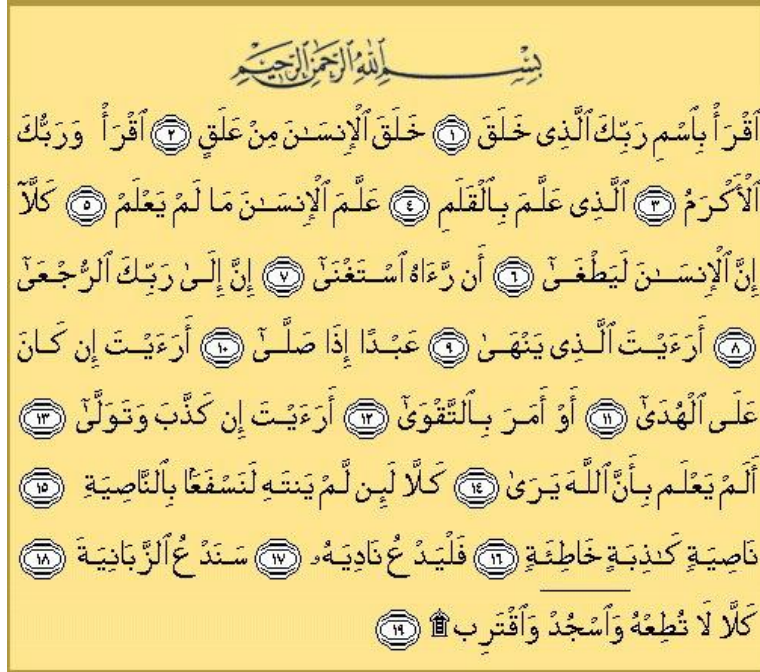 بِسْمِ ٱللَّهِ ٱلرَّحْمَٰنِ ٱلرَّحِيمِ
ٱقْرَأْ بِٱسْمِ رَبِّكَ ٱلَّذِى خَلَقَ ١ خَلَقَ ٱلْإِنسَـٰنَ مِنْ عَلَقٍ ٢ ٱقْرَأْ وَرَبُّكَ
ٱلْأَكْرَمُ ٣ ٱلَّذِى عَلَّمَ بِٱلْقَلَمِ ٤ عَلَّمَ ٱلْإِنسَـٰنَ مَا لَمْ يَعْلَمْ ٥ كَلَّآ
إِنَّ ٱلْإِنسَـٰنَ لَيَطْغَىٰٓ ٦ أَن رَّءَاهُ ٱسْتَغْنَىٰٓ ٧ إِنَّ إِلَىٰ رَبِّكَ ٱلرُّجْعَىٰٓ
٨ أَرَءَيْتَ ٱلَّذِى يَنْهَىٰ ٩ عَبْدًا إِذَا صَلَّىٰٓ ١٠ أَرَءَيْتَ إِن كَانَ
عَلَى ٱلْهُدَىٰٓ ١١ أَوْ أَمَرَ بِٱلتَّقْوَىٰٓ ١٢ أَرَءَيْتَ إِن كَذَّبَ وَتَوَلَّىٰٓ ١٣
أَلَمْ يَعْلَم بِأَنَّ ٱللَّهَ يَرَىٰ ١٤ كَلَّا لَئِن لَّمْ يَنتَهِ لَنَسْفَعًۢا بِٱلنَّاصِيَةِ ١٥
نَاصِيَةٍ كَـٰذِبَةٍ خَاطِئَةٍ ١٦ فَلْيَدْعُ نَادِيَهُۥ ١٧ سَنَدْعُ ٱلزَّبَانِيَةَ ١٨
كَلَّا لَا تُطِعْهُ وَٱسْجُدْ وَٱقْتَرِب ۩ ١٩